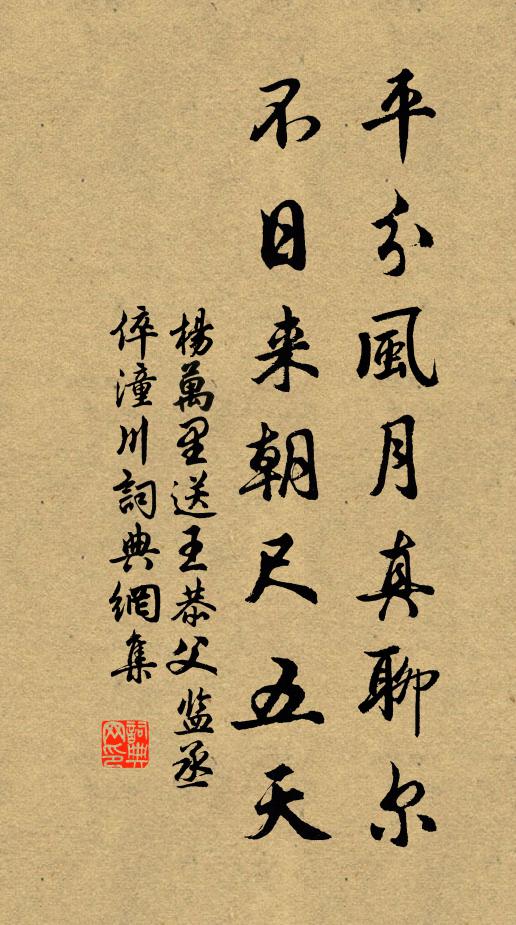 平分風月真聊尔
不日来朝尺五天
楊萬里送王恭父监丞
倅潼川詞典網集
詞典
网印